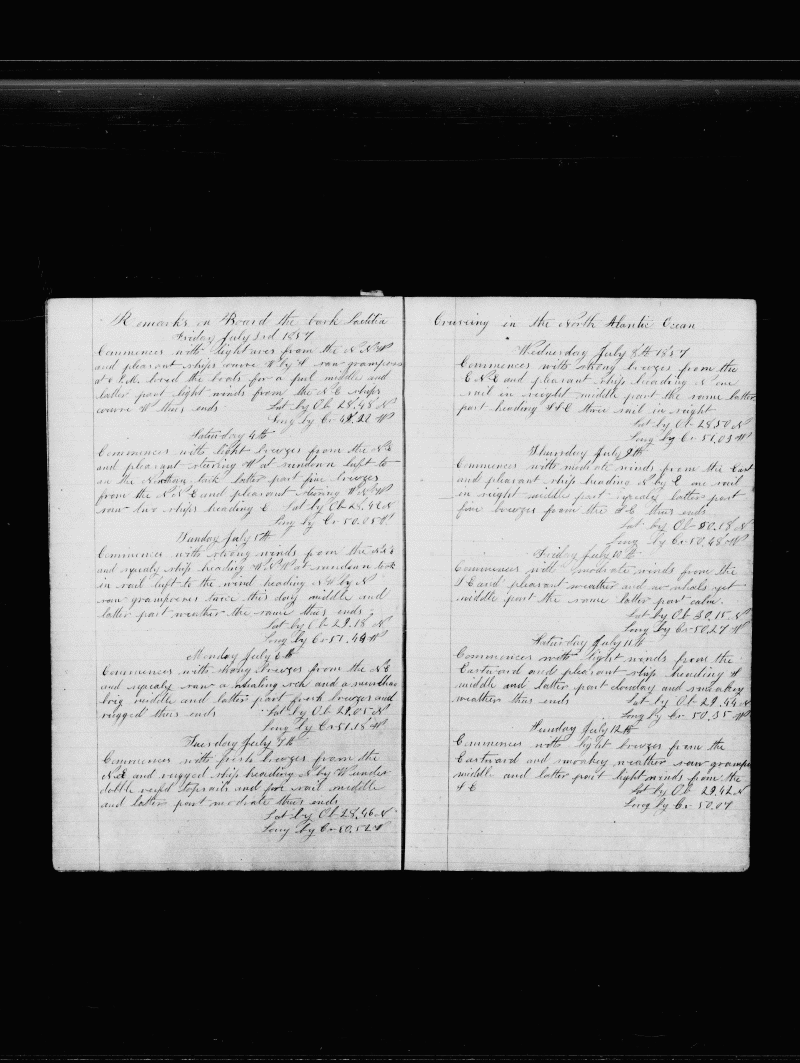 Remarks on Board the bark Laetitia
Friday July 3rd 1857
Commences with light aires from the N N W
and pleasant ships course W by S saw grampuses
at 6 P.M. lowed the boats for a pul middle and
latter part light winds from the N E ships
course W thus ends Lat by Ob 28.48 N
Long by Cr 49.22 W
Saturday 4th
Commences with light breezes from the N E
and pleasant stering W at sundown luft to
on the Northern tack latter part fine breezes
from the N N E and pleasant stering W N W
saw two ships heading E Lat by Ob 28.42 N
Long by Cr 50.05 W
Sunday July 5th
Commences with strong winds from the N E
and squaly ship heading W N W at sundown took
in sail luft to the wind heading N W by N
saw grampuses twice this day middle and
latter part weather the same thus ends
Lat by Ob 29.18 N
Long by Cr 51.49 W
Monday July 6th
Commences with strong breezes from the N E
and squaly saw a whaling sch and a merchant
brig middle and latter part fresh breezes and
rugged thus ends Lat by Ob 29.05 N
Long by Cr 51.18 W
Tuesday July 7th
Commences with fresh breezes from the
N E and rugged ship heading N by W under
dobble reefd topsails and fore sail middle
and latter part moderate thus ends
Lat by Ob 28.46 N
Long by Cr 50.52 W
Cruising in the North Atlantic Ocean
Wednesday July 8th 1857
Commences with strong breezes from the
E N E and pleasant ship heading N one
sail in sight middle part the same latter
part heading S S E three sail in sight
Lat by Ob 28.50 N
Long by Cr 51.03 W
Thursday July 9th
Commences with moderate winds from the East
and pleasant ship heading N by E one sail
in sight middle part squaly latter part
fine breezes from the S E thus ends
Lat by Ob 30.18 N
Long by Cr 50.48 W
Friday July 10th
Commences with moderate winds from the
S E and pleasant weather and no whals yet
middle part the same latter part calm.
Lat by Ob 30.15 N
Long by Cr 50.27 W
Saturday July 11th
Commences with light winds from the
Eastward and pleasant ship heading S
middle and latter part cloudy and smoakey
weather thus ends Lat by Ob 29.44 N
Long by Cr 50.35 W
Sunday July 12th
Commences with light breezes from the
Eastward and smoakey weather saw grampuses
middle and latter part light winds from the
S E Lat by Ob 29.42 N
Long by Cr 50.07